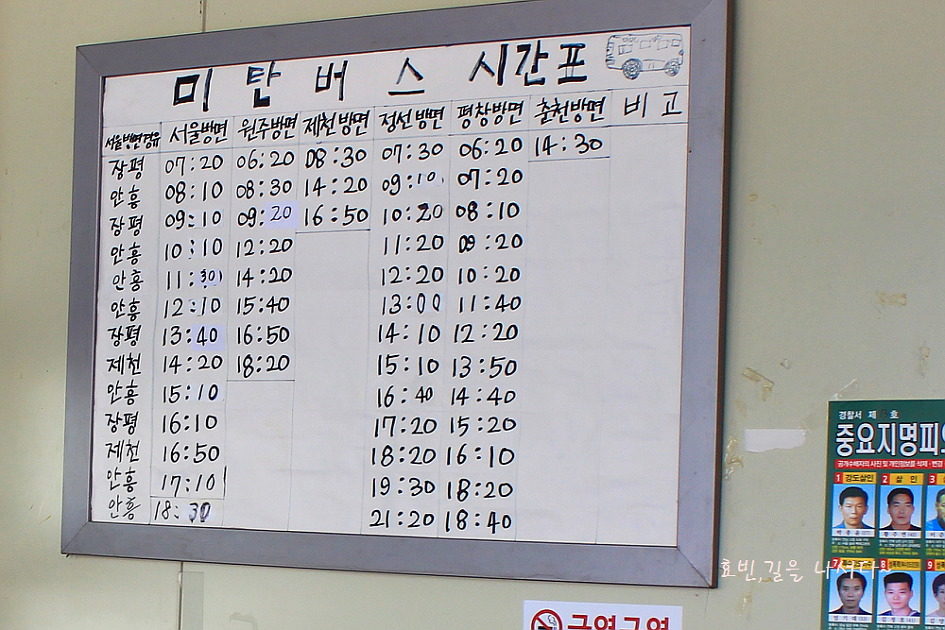 미 탄 버 스 시간표
서울방면경유 서울방면 원주방면 제천방면 정선방면 평창방면 춘천방면 비 고
장평 07:20 06:20 08:30 07:30 06:20 14:30
안흥 08:10 08:30 14:20 09:10 07:20
장평 09:10 09:20 16:50 10:20 08:10
안흥 10:10 12:20 11:20 09:20
안흥 11:30 14:20 12:20 10:20
안흥 12:10 15:40 13:00 11:40
장평 13:40 16:50 14:10 12:20
제천 14:20 18:20 15:10 13:50
안흥 15:10 16:40 14:40
장평 16:10 17:20 15:20
제천 16:50 18:20 16:10
안흥 17:10 19:30 18:20
안흥 18:30 21:20 18:40
경찰서 제 호
중요지명피
1 강도살인 2 살 인 3
8 9
효빈,길을 나서다
금연구역